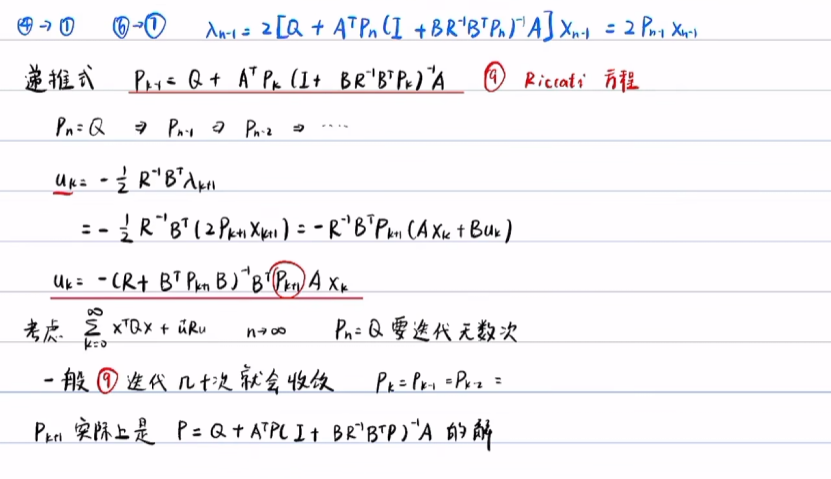 ④→① ⑥→⑦ λn-1 = 2[Q + AᵀPn(I + BR⁻¹BᵀPn)⁻¹A]Xn-1 = 2Pn-1Xn-1
递推式 Pk-1 = Q + AᵀPk(I + BR⁻¹BᵀPk)⁻¹A ⑨ Riccati 方程
Pn = Q ⇒ Pn-1 ⇒ Pn-2 ⇒ ····
uk = -½R⁻¹Bᵀλk+1
= -½R⁻¹Bᵀ(2Pk+1Xk+1) = -R⁻¹BᵀPk+1(AXk + Buk)
uk = -(R + BᵀPk+1B)⁻¹BᵀPk+1AXk
考虑 ∞∑k=0 xᵀQx + uᵀRu n→∞ Pn = Q 要迭代无数次
一般 ⑨ 迭代几十次就会收敛 Pk = Pk-1 = Pk-2 =
Pk+1 实际上是 P = Q + AᵀP(I + BR⁻¹BᵀP)⁻¹A 的解